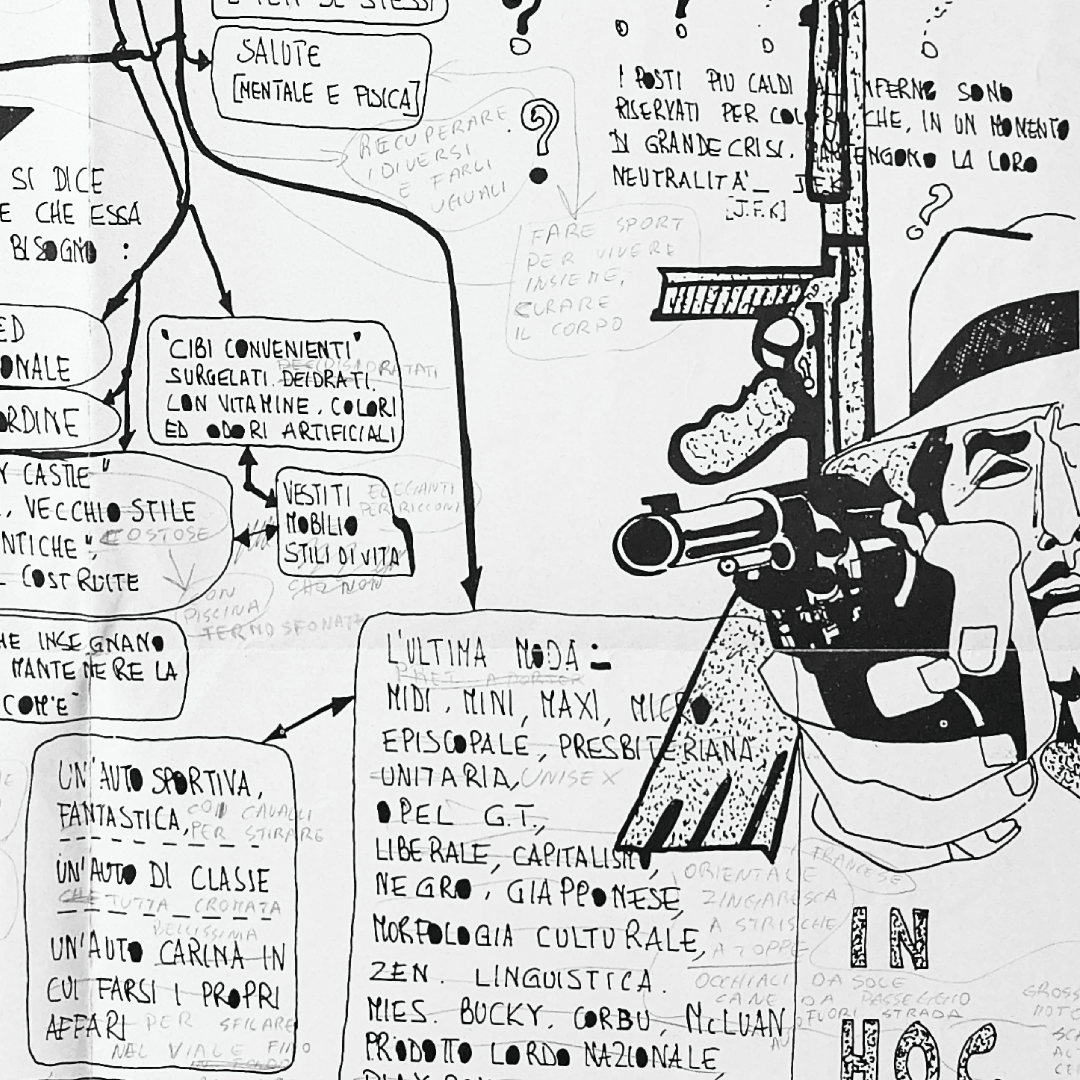 E PER SE STESSI
SALUTE
[MENTALE E FISICA]
RECUPERARE
I DIVERSI
E FARLI
UGUALI
I POSTI PIU CALDI INFERNO SONO
RISERVATI PER COLORO CHE, IN UN MOMENTO
DI GRANDE CRISI. MANTENGONO LA LORO
NEUTRALITA'_ J.F.K.
[J.F.K]
SI DICE
E CHE ESSA
BISOGNO :
FARE SPORT
PER VIVERE
INSIEME,
CURARE
IL CORPO
ED
ONALE
ORDINE
"CIBI CONVENIENTI"
SURGELATI. DEIDRATI.
CON VITAMINE, COLORI
ED ODORI ARTIFICIALI
Y CASTLE"
, VECCHIO STILE
COSTOSE
NTICHE",
COSTRUITE
CON
PISCINA
VESTITI
MOBILIO
STILI DI VITA
ELEGANTI
PER RICCONI
CHE NON
HE INSEGNANO
MANTENERE LA
COM'E'
UN'AUTO SPORTIVA,
FANTASTICA,
CON CAVALLI
PER STIRARE
UN'AUTO DI CLASSE
CHE TUTTA CROMATA
BELLISSIMA
UN'AUTO CARINA IN
CUI FARSI I PROPRI
AFFARI PER SFILARE
NEL VIALE FINO
IN FONDO
L'ULTIMA MODA:
PRET A PORTER
MIDI, MINI, MAXI, MICRO
EPISCOPALE, PRESBITERIANA,
UNITARIA, UNISEX
OPEL G.T.,
LIBERALE, CAPITALISMO
NEGRO, GIAPPONESE,
MORFOLOGIA CULTURALE,
ZEN. LINGUISTICA.
MIES. BUCKY. CORBU, McLUAN
PRODOTTO LORDO NAZIONALE,
ORIENTALE
FRANCESE
ZINGARESCA
A STRISCHE
A TOPPE
OCCHIALI DA SOLE
CANE DA PASSEGGIO
FUORI STRADA
IN
HOC